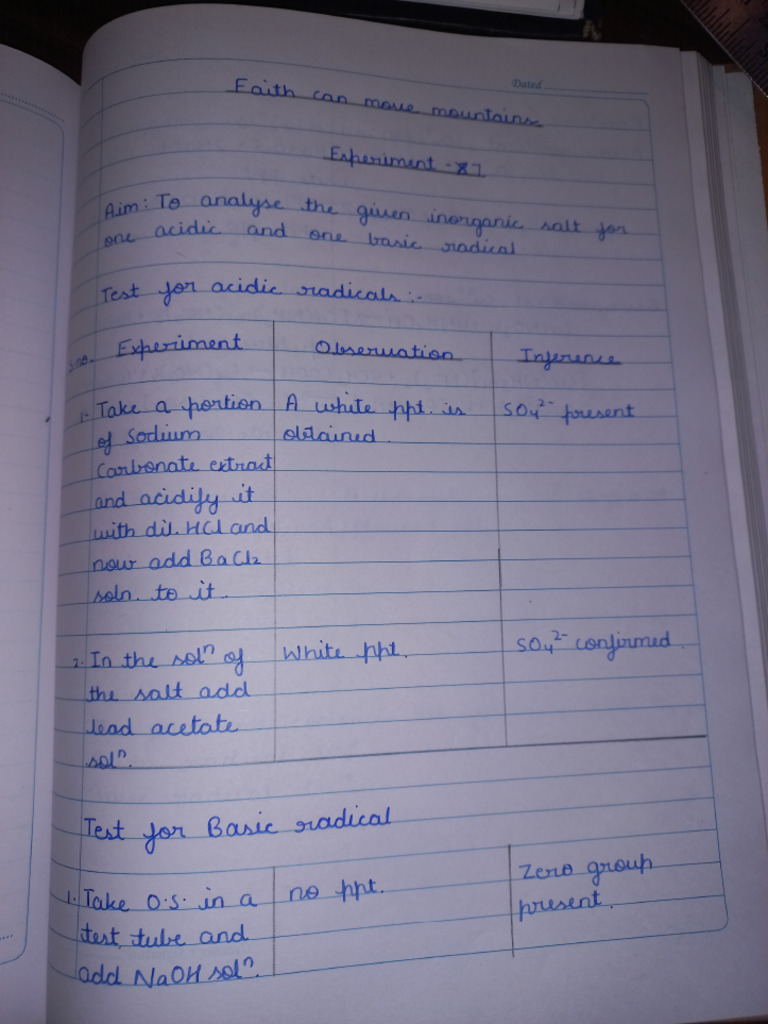 Dated
Faith can move mountains
Experiment - 7
Aim: To analyse the given inorganic salt for
one acidic and one basic radical
Test for acidic radicals :-
S.no. Experiment Observation Inference
1. Take a portion A white ppt. is SO₄²⁻ present
of sodium obtained.
carbonate extract
and acidify it
with dil. HCl and
now add BaCl₂
soln. to it.
2. In the solⁿ of White ppt. SO₄²⁻ confirmed.
the salt add
lead acetate
solⁿ.
Test for Basic radical
1. Take O.S. in a no ppt. Zero group
test tube and present.
add NaOH solⁿ.